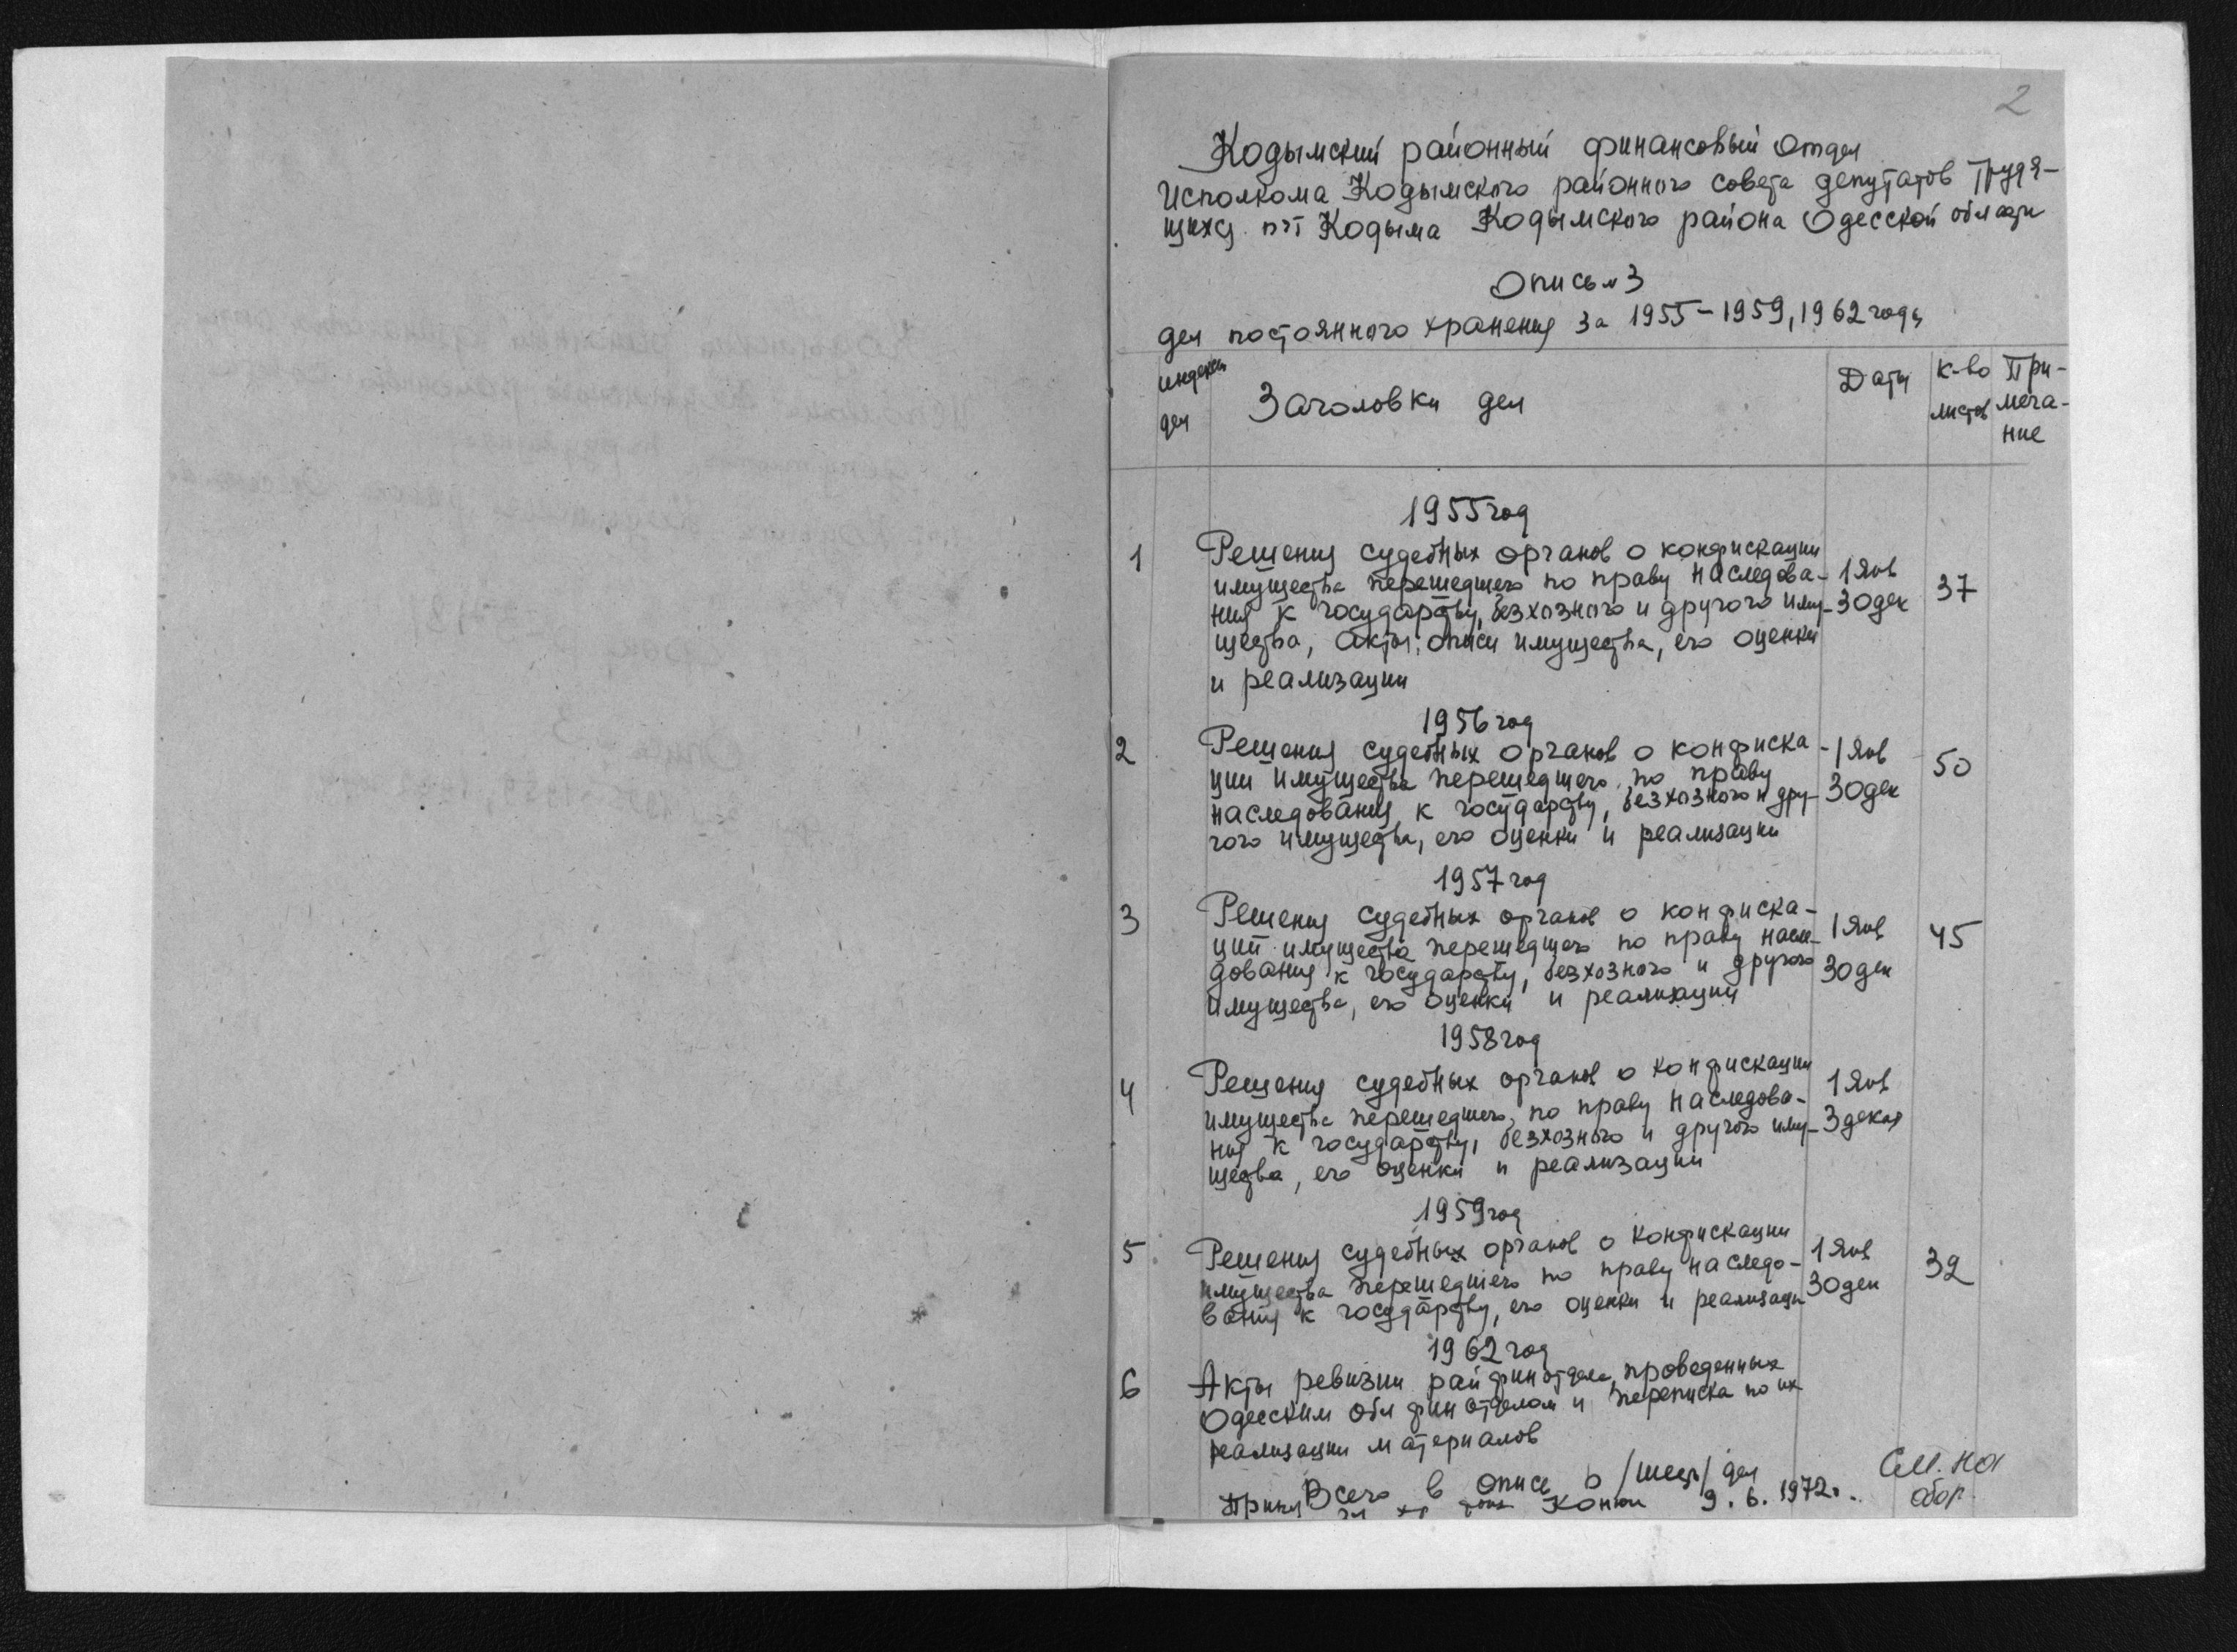 2
Кодымский районный финансовый отдел
Исполкома Кодымского районного совета депутатов трудя-
щихся пгт Кодыма Кодымского района Одесской области
Опись №3
дел постоянного хранения за 1955-1959, 1962 годы
индексы дел
Заголовки дел
Даты
к-во листов
При-
меча-
ние
1955 год
1
Решения судебных органов о конфискации
имущества перешедшего по праву наследова-
ния к государству, безхозного и другого иму-
щества, акты, описи имущества, его оценки
и реализации
1 янв
30 дек
37
1956 год
2
Решения судебных органов о конфиска-
ции имущества перешедшего по праву
наследования к государству, безхозного и дру-
гого имущества, его оценки и реализации
1 янв
30 дек
50
1957 год
3
Решения судебных органов о конфиска-
ции имущества перешедшего по праву насле-
дования к государству, безхозного и другого
имущества, его оценки и реализации
1 янв
30 дек
45
1958 год
4
Решения судебных органов о конфискации
имущества перешедшего по праву наследова-
ния к государству, безхозного и другого иму-
щества, его оценки и реализации
1 янв
3 декаб
1959 год
5
Решения судебных органов о конфискации
имущества перешедшего по праву наследо-
вания к государству, его оценки и реализации
1 янв
30 дек
32
1962 год
6
Акты ревизии райфинотдела, проведенных
Одесским облфинотделом и переписка по их
реализации материалов
Всего в описе 6 /шесть/ дел
9.6.1972г.
См. на
обор.